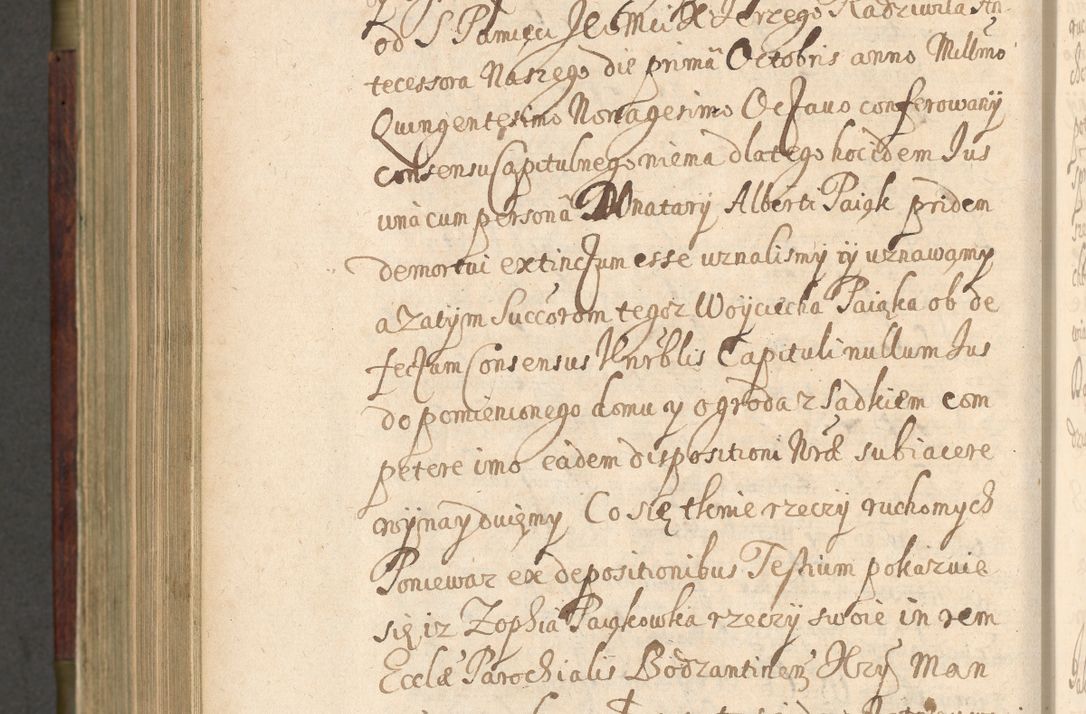 od S. Pamięci Je͠o Mci X Jerzego Radziwiła An-
tecessora Naszego die primâ Octobris anno Mill͠mo
Quingentesimo Nonagesimo Octauo conferowany
consensu Capitulnego niema dlatego hoc idem Jus
unà cum personâ Donatarÿ Alberti Paiąk pridem
demortui extinctum esse uznalismy ÿ uznawamy
a zatÿm Succorom tegoz Woÿciecha Paiąka ob de
fectum Consensus Vnrblis Capituli nullum Jus
do pomienionego domu y ogroda z Sadkiem com
petere imo eâdem dispositioni Nræ subiacere
wÿnayduięmy Co się tknie rzeczÿ ruchomych
Poniewaz ex depositionibus Testium pokazuie
się iz Zophia Paiąkowska rzeczÿ swoie in rem
Ecclæ Parochialis Bodzantinen Xrzÿ Man